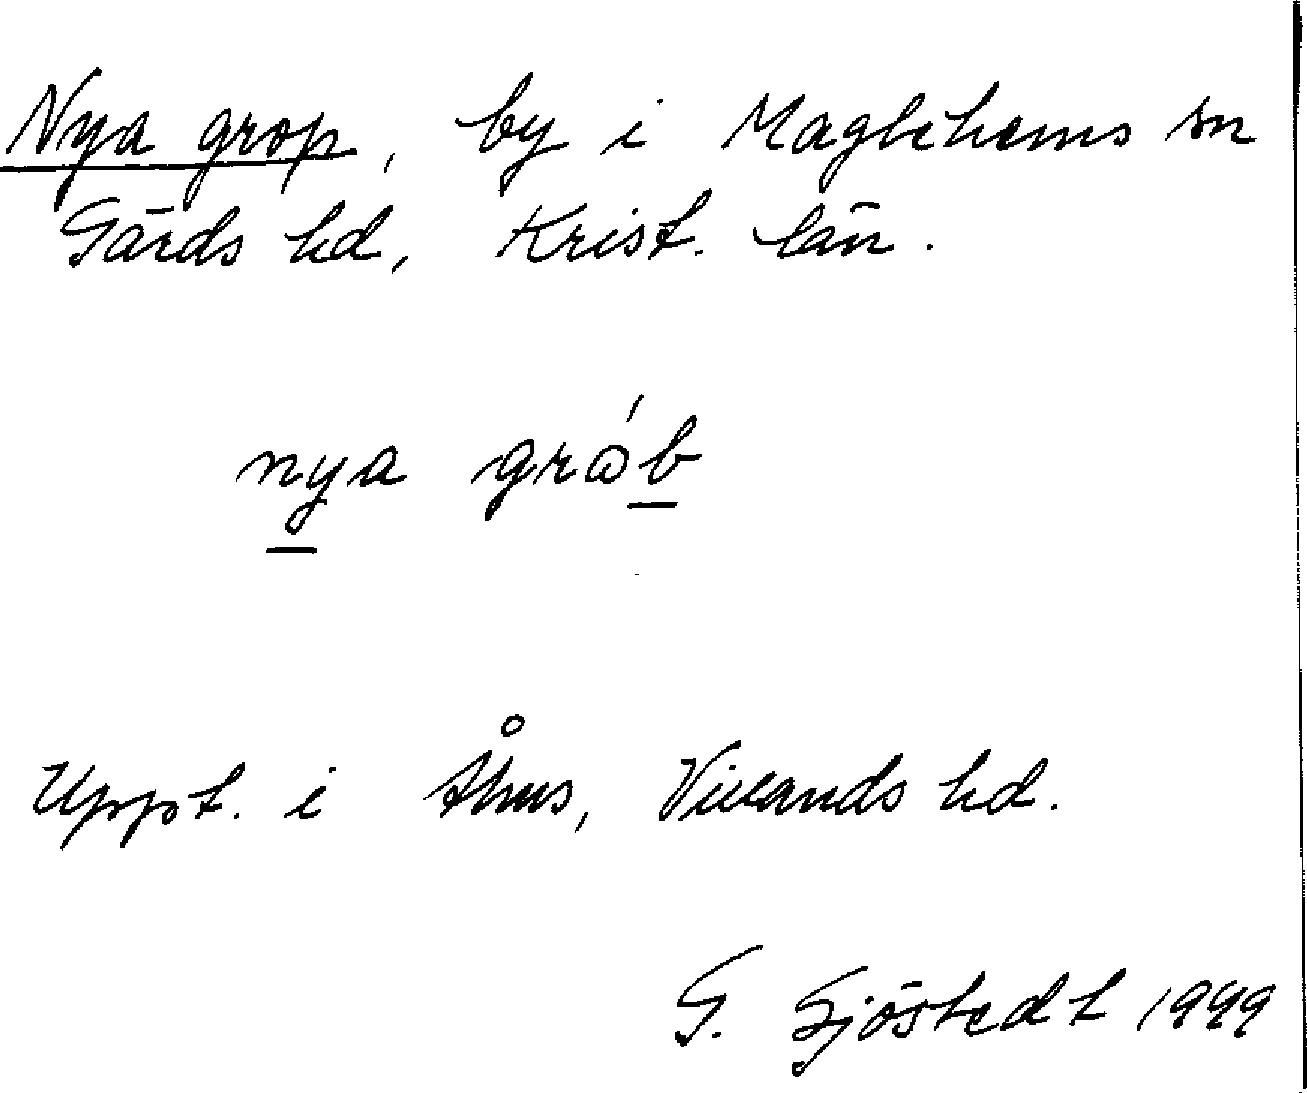 Nya grop, by i Maglehems sn
Gärds hd, Krist. län.
nya gráb
Uppt. i Åhus, Villands hd.
G. Sjöstedt 1949